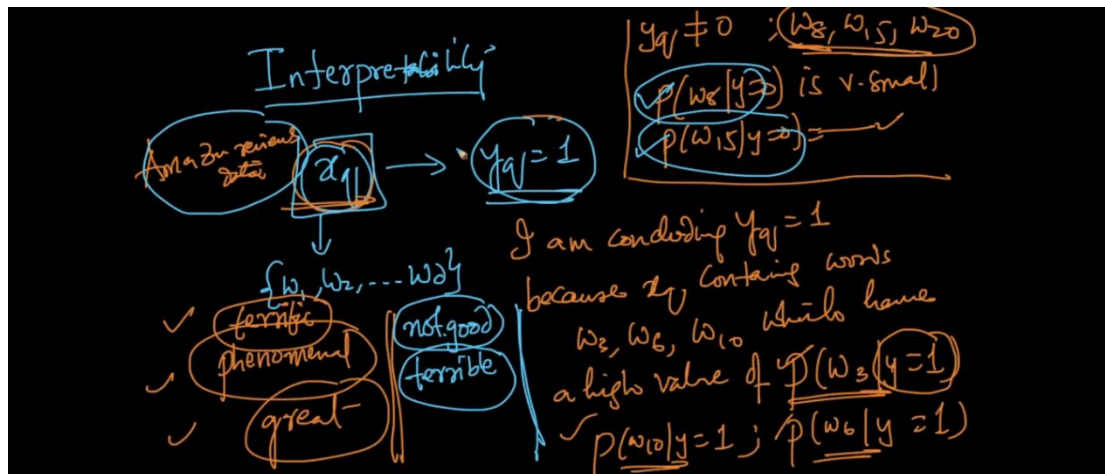 Interpretability
Amazon reviews
data
xq → yq = 1
{w1, w2, .... wd}
terrific
phenomenal
great
not good
terrible
yq ≠ 0 ; w8, w15, w20
p(w8|y=0) is v-small
p(w15|y=0) =
I am concluding yq = 1
because xq containg words
w3, w6, w10 which have
a high value of p(w3|y=1)
p(w10|y=1 ; p(w6|y=1)